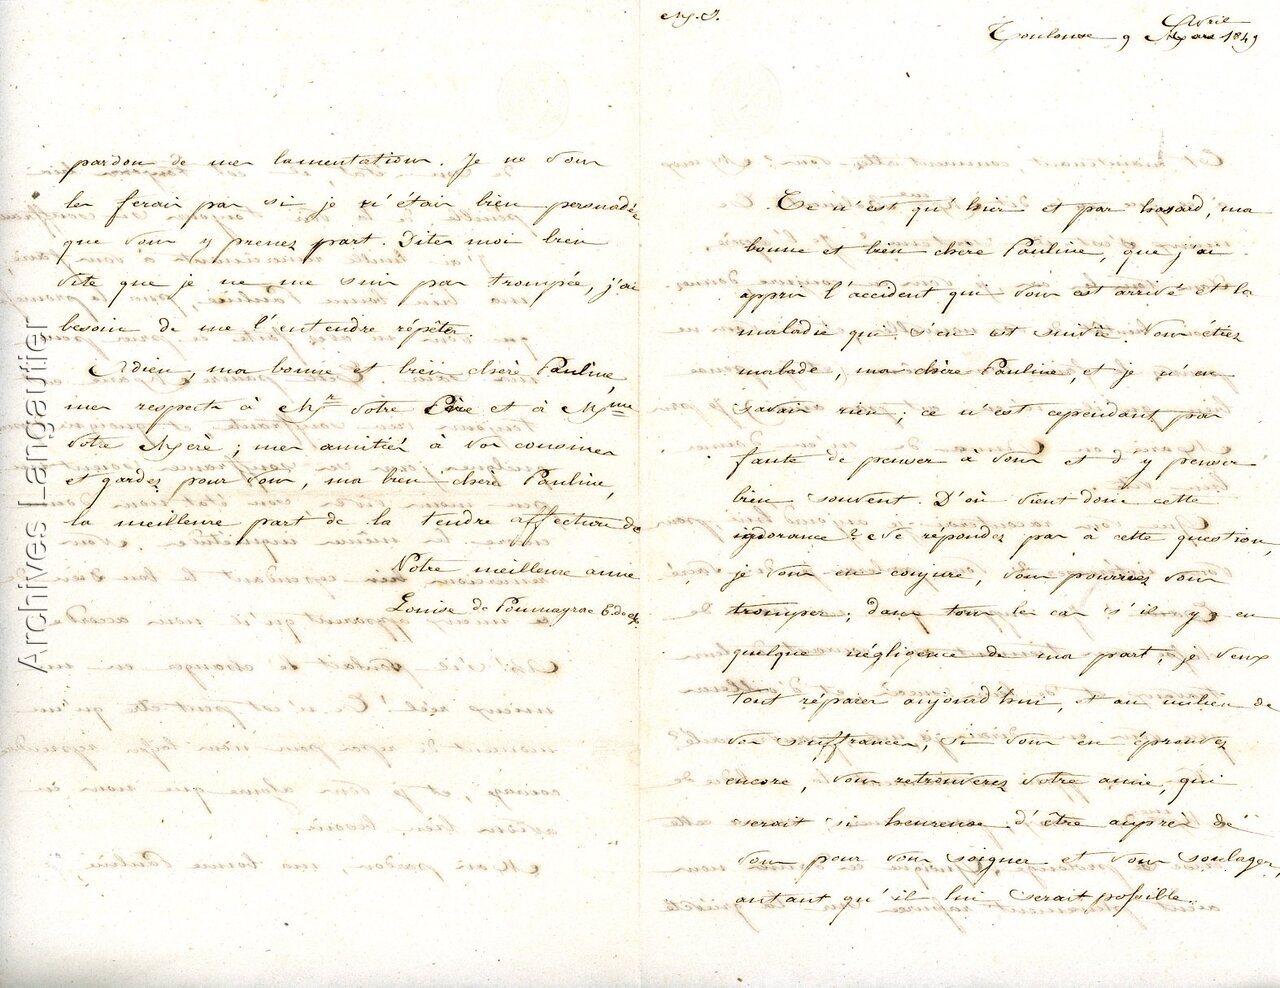 M. J.
Toulouse 9 Avril Mars 1849
Ce n'est qu'hier et par hasard, ma
bonne et bien chère Pauline, que j'ai
appris l'accident qui vous est arrivé et la
maladie qui s'en est suivie. Vous étiez
malade, ma chère Pauline, et je n'en
savais rien ; ce n'est cependant pas
faute de penser à vous et d'y penser
bien souvent. D'où vient donc cette
ignorance ? Ne répondez pas à cette question,
je vous en conjure, vous pourriez vous
tromper ; dans tous les cas s'il y a eu
quelque négligence de ma part, je veux
tout réparer aujourd'hui, et au milieu de
vos souffrances, si vous en éprouvez
encore, vous retrouverez votre amie, qui
serait si heureuse d'être auprès de
vous pour vous soigner et vous soulager,
autant qu'il lui serait possible.
pardon de mes lamentations. Je ne vous
les ferais pas si je n'étais bien persuadée
que vous y prenez part. Dites moi bien
vite que je ne me suis pas trompée, j'ai
besoin de me l'entendre répéter.
Adieu, ma bonne et bien chère Pauline,
mes respects à Mr votre Père et à Mme
votre Mère ; mes amitiés à vos cousines
et gardez pour vous, ma bien chère Pauline,
la meilleure part de la tendre affection de
Votre meilleure amie
Louise de Poumayrac E. de M.
Archives Langautier